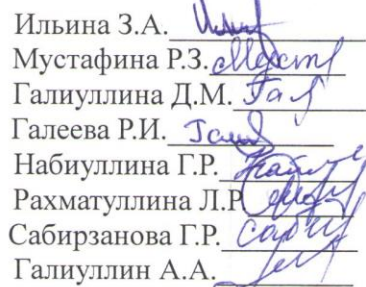 Ильина З.А.
Мустафина Р.З.
Галиуллина Д.М.
Галеева Р.И.
Набиуллина Г.Р.
Рахматуллина Л.Р
Сабирзанова Г.Р.
Галиуллин А.А.